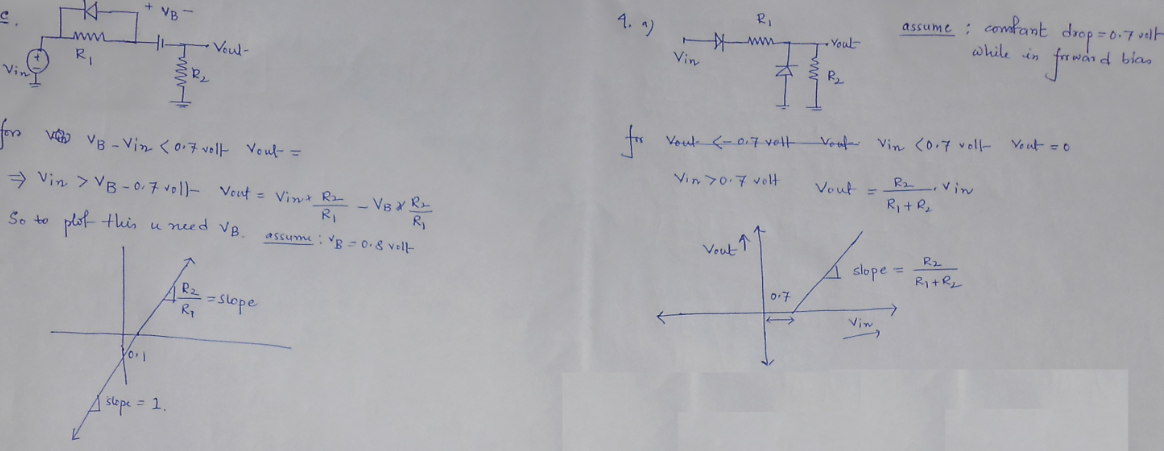 c.
+ VB -
R1
Vin
Vout
R2
for VB - Vin < 0.7 volt Vout =
⇒ Vin > VB - 0.7 volt Vout = Vin * R2/R1 - VB * R2/R1
So to plot this u need VB. assume : VB = 0.8 volt
R2/R1 = slope
0.1
slope = 1.
4. a)
R1
Vin
Vout
R2
assume : constant drop = 0.7 volt
while in forward bias
for Vout < -0.7 volt Vout Vin < 0.7 volt Vout = 0
Vin > 0.7 volt Vout = R2/R1 + R2 . Vin
Vout ↑
slope = R2/R1 + R2
0.7
Vin